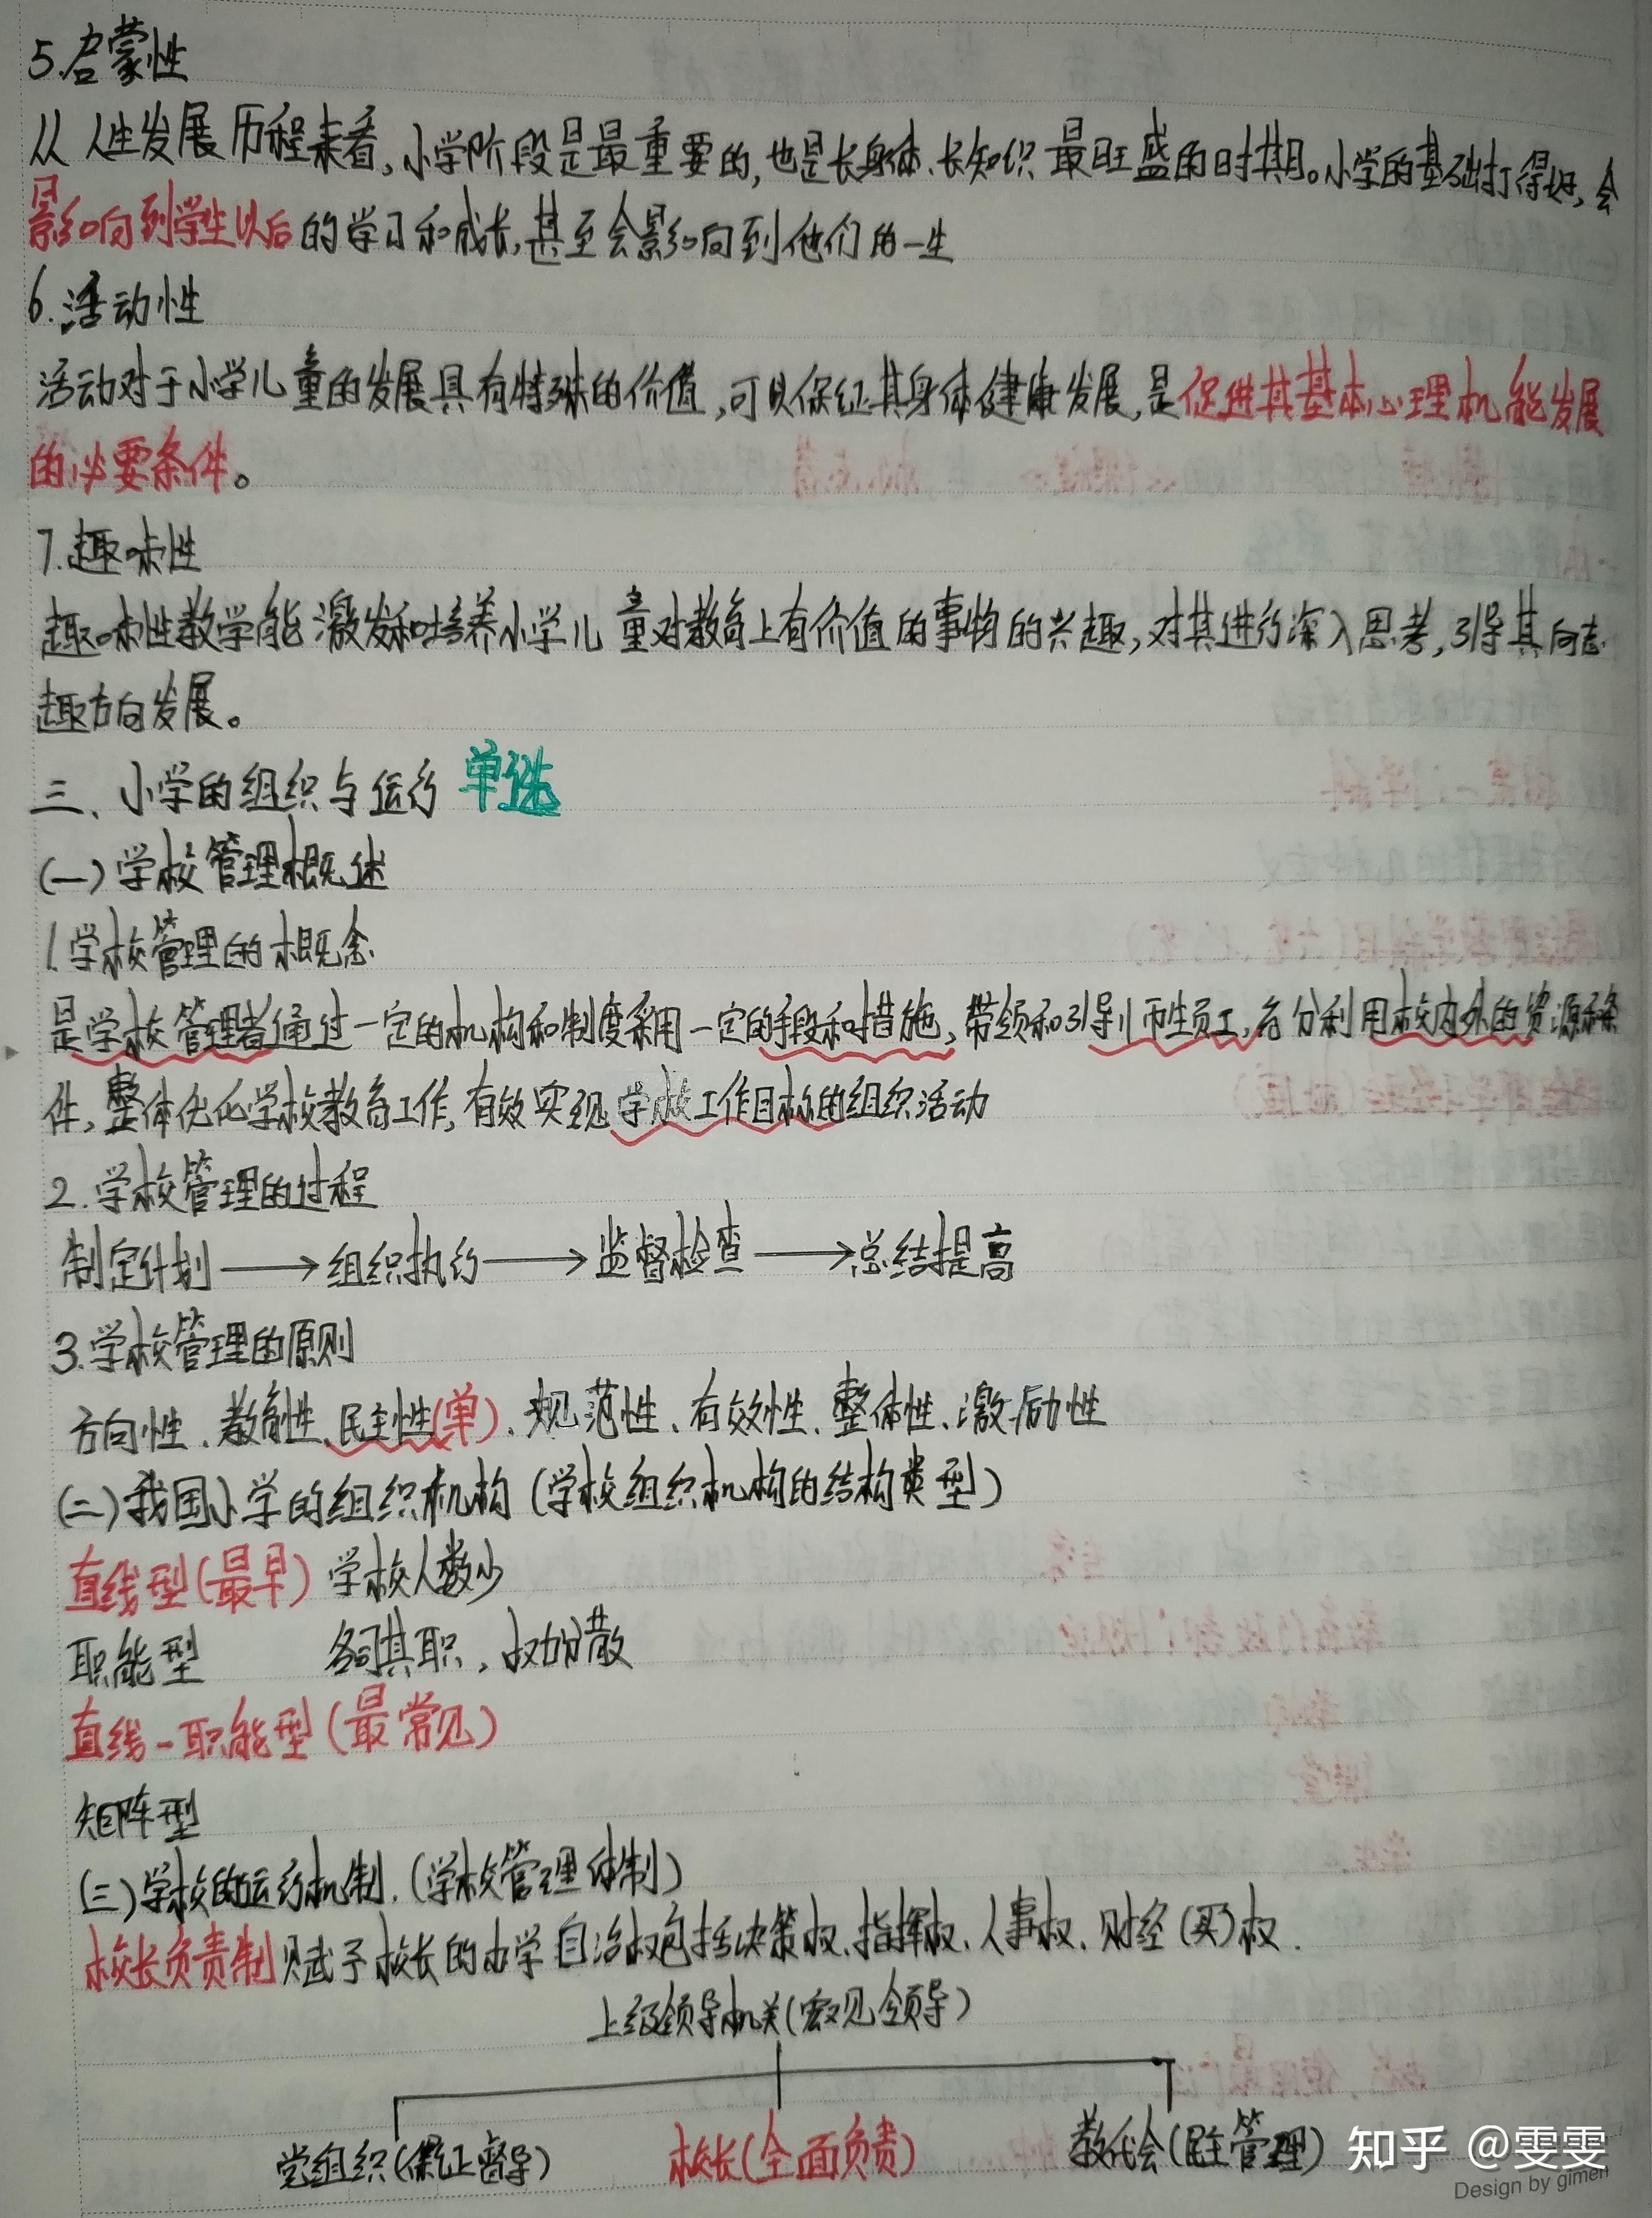 5.启蒙性
从人生发展历程来看,小学阶段是最重要的,也是长身体、长知识最旺盛的时期。小学的基础打得好,会
影响到学生以后的学习和成长,甚至会影响到他们的一生
6.活动性
活动对于小学儿童的发展具有特殊的价值,可以保证其身体健康发展,是促进其基本心理机能发展
的必要条件。
7.趣味性
趣味性教学能激发和培养小学儿童对教育上有价值的事物的兴趣,对其进行深入思考,引导其向志
趣方向发展。
三、小学的组织与运行 单选
(一)学校管理概述
1.学校管理的概念
是学校管理者通过一定的机构和制度采用一定的手段和措施,带领和引导师生员工,充分利用校内外的资源和条
件,整体优化学校教育工作,有效实现学校工作目标的组织活动
2.学校管理的过程
制定计划→组织执行→监督检查→总结提高
3.学校管理的原则
方向性、教育性、民主性(单)、规范性、有效性、整体性、激励性
(二)我国小学的组织机构(学校组织机构的结构类型)
直线型(最早) 学校人数少
职能型 各司其职、权力分散
直线-职能型(最常见)
矩阵型
(三)学校的运行机制.(学校管理体制)
校长负责制 赋予校长的办学自治权包括决策权、指挥权、人事权、财经(买)权.
上级领导机关(宏观领导)
党组织(保证督导) 校长(全面负责) 教代会(民主管理)
知乎 @雯雯
Design by gimen